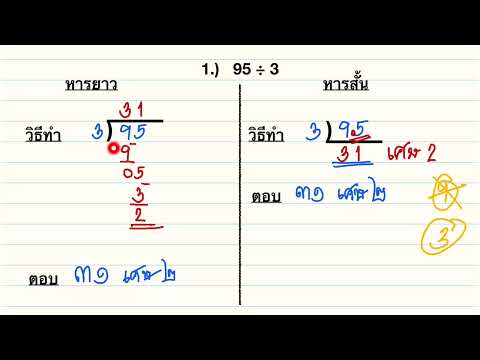 1.) 95 ÷ 3
หารยาว
31
วิธีทำ 3 ) 95
9
05
3
2
ตอบ ๓๑ เศษ ๒
หารสั้น
วิธีทำ 3 ) 95
31 เศษ 2
ตอบ ๓๑ เศษ ๒
3